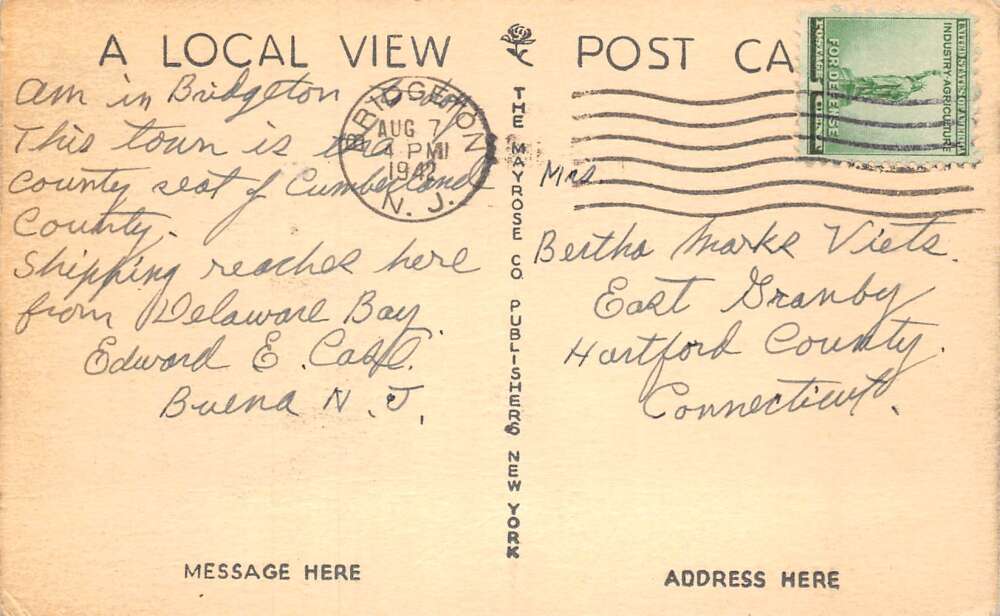 A LOCAL VIEW
POST CA
am in Bridgeton
This town is the
county seat of Cumberland
County.
Shipping reaches here
from Delaware Bay.
Edward E.
Buena N. J.
BRIDGETON
AUG 7
4 PM
1942
N. J.
THE MAYROSE CO. PUBLISHERS NEW YORK
UNITED STATES OF AMERICA
INDUSTRY-AGRICULTURE
FOR DEFENSE
POSTAGE
Mrs
Bertha Marks Viets.
East Granby
Hartford County.
Connecticut.
MESSAGE HERE
ADDRESS HERE